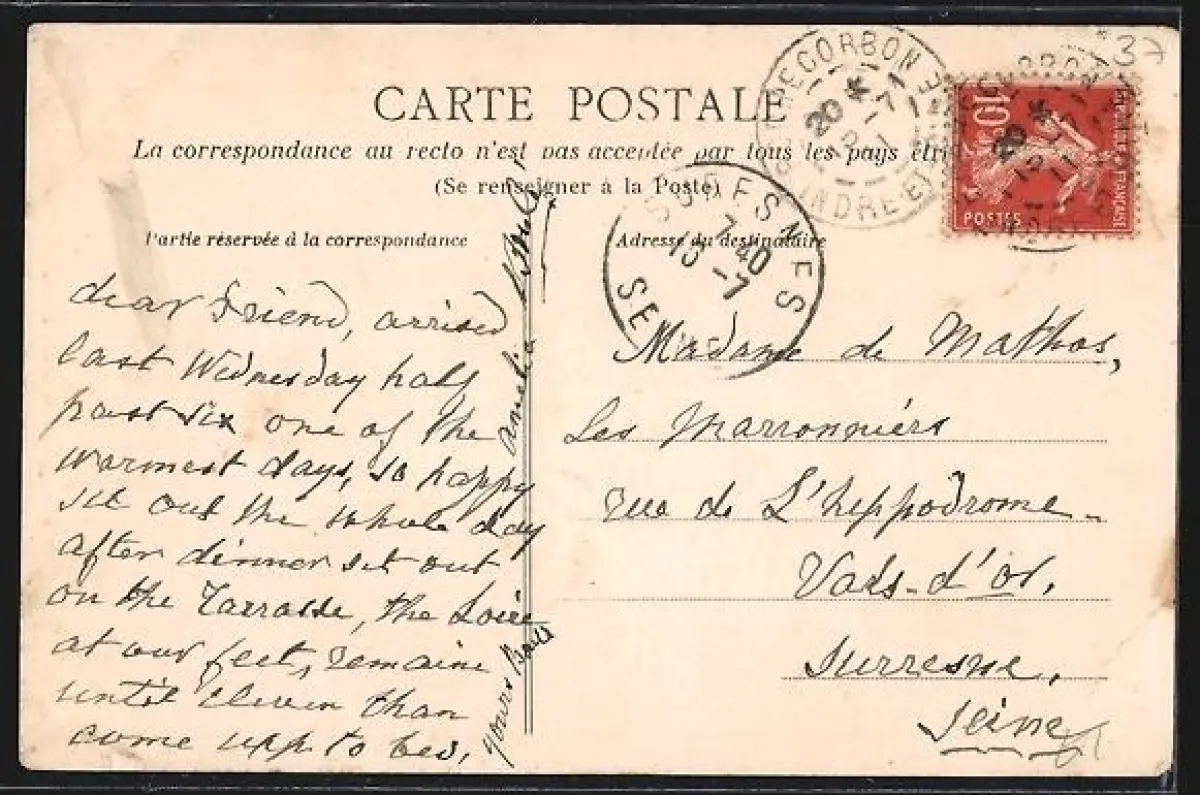 CARTE POSTALE
La correspondance au recto n'est pas acceptée par tous les pays étr
(Se renseigner à la Poste)
Partie réservée à la correspondance
Adresse du destinataire
37
10
POSTES
FRANÇAISE
INDRE-ET-
20 *
SURESNES
7 40
13 -7
SE
dear Friend, arrised
last Wednesday half
past six one of the
warmest days, so happy
sit out the whole day
after dinner sit out
on the Tarrasse, the Loire
at our feet, remaine
until eleven than
come upp to bed,
yours
Madame de Mathos,
Les Marronniérs
rue de L'heppodrome-
Vals-d'or,
Surresne,
Seine